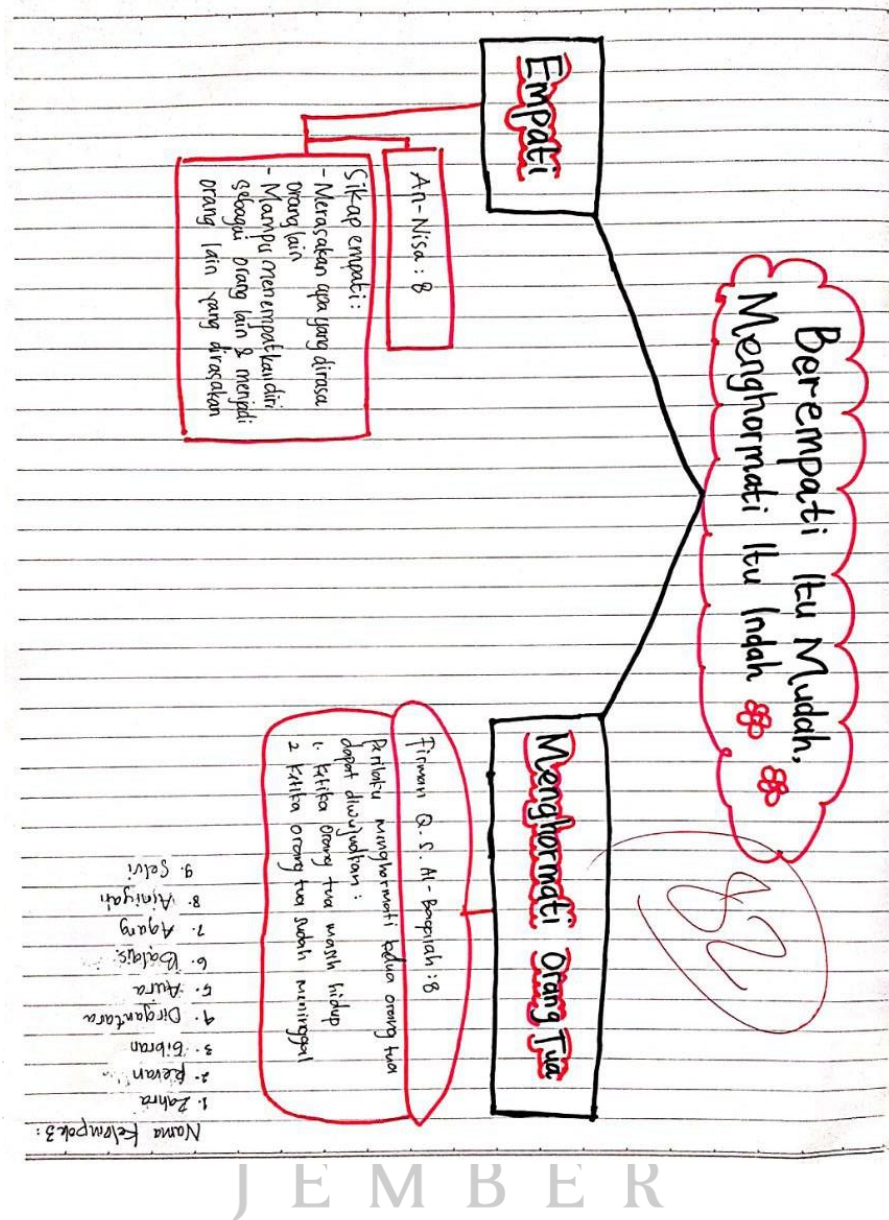 Berempati Itu Mudah,
Menghormati Itu Indah
82
Empati
An-Nisa : 8
Sikap empati :
- Merasakan apa yang dirasa
orang lain
- Mampu menempatkan diri
sebagai orang lain & menjadi
orang lain yang dirasakan
Menghormati Orang Tua
Firman Q.S. Al-Baqarah : 8
Perilaku menghormati kedua orang tua
dapat diwujudkan :
1. Ketika orang tua masih hidup
2 Ketika orang tua sudah meninggal
Nama Kelompok 3 :
1. Zahra
2. Revan
3. Gibran
4. Dirgantara
5. Aura
6. Balqis
7. Agang
8. Ajniyah
9. Selvi
JEMBER